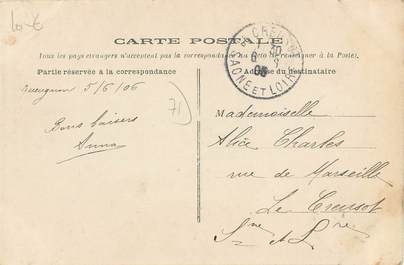 10-€
CARTE POSTALE
Tous les pays étrangers n'acceptant pas la correspondance au
(se renseigner à la Poste).
Partie réservée à la correspondance
Adresse du destinataire
SAONE ET LOIRE
Gueugnon 5/6/06
71
Bons baisers
Anna
Mademoiselle
Alice Charles
rue de Marseille
Le Creusot
Sne & Lre